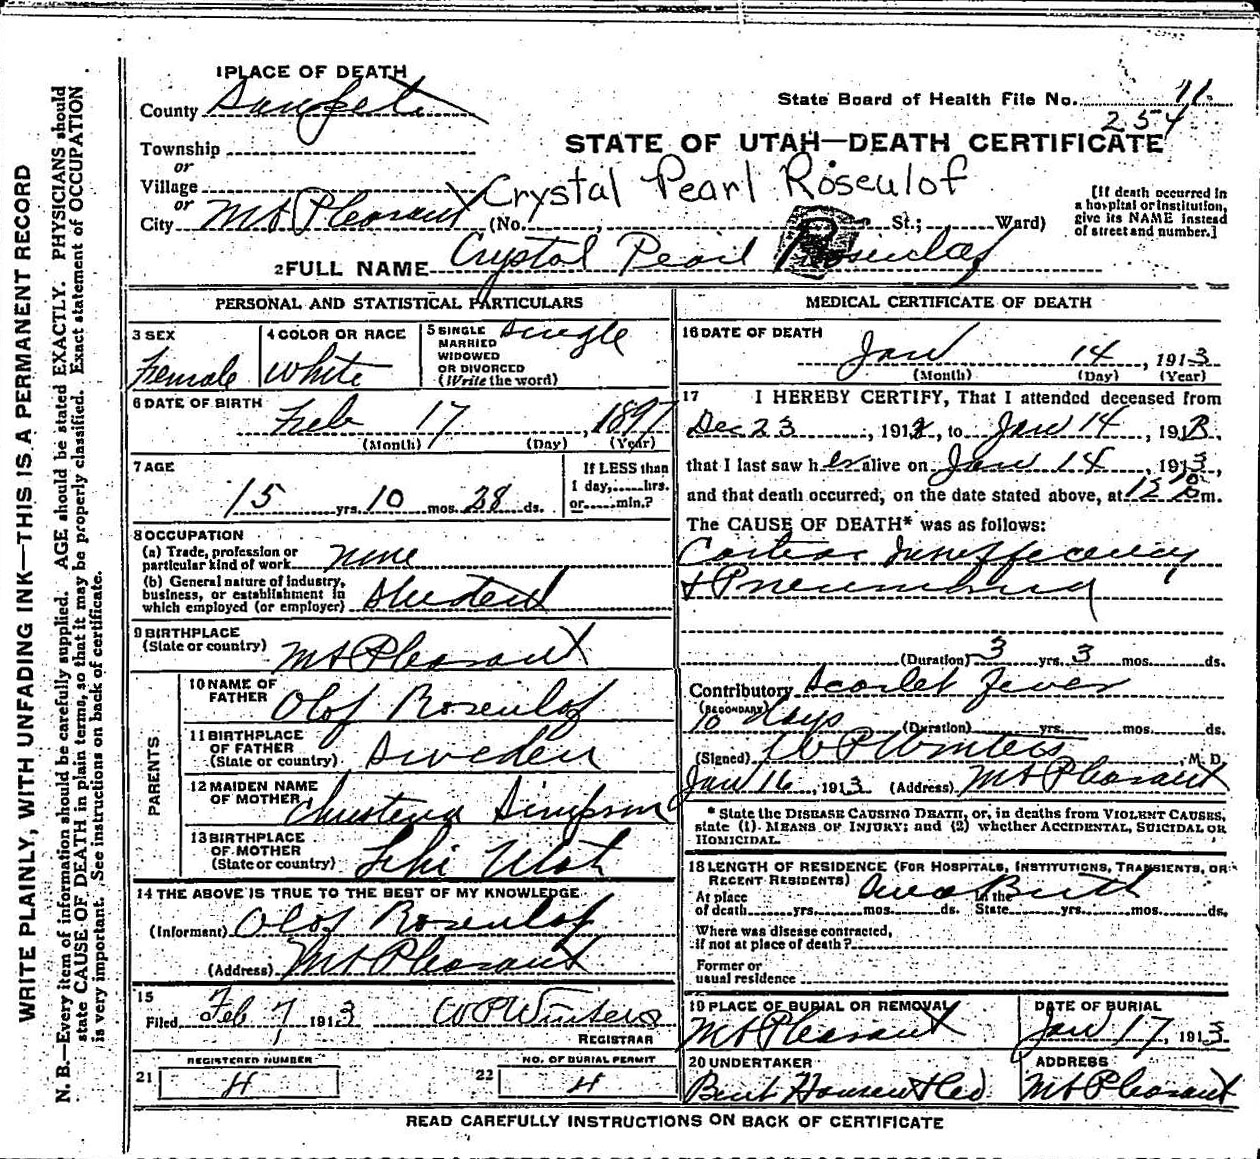 WRITE PLAINLY, WITH UNFADING INK—THIS IS A PERMANENT RECORD
N. B.—Every item of information should be carefully supplied. AGE should be stated EXACTLY. PHYSICIANS should
state CAUSE OF DEATH in plain terms, so that it may be properly classified. Exact statement of OCCUPATION
is very important. See instructions on back of certificate.
1 PLACE OF DEATH
County Sanpete
Township
or
Village
or
City Mt Pleasant
State Board of Health File No. 11
254
STATE OF UTAH—DEATH CERTIFICATE
Crystal Pearl Roseulof
(No. St.; Ward)
[If death occurred in
a hospital or institution,
give its NAME instead
of street and number.]
2 FULL NAME Crystal Pearl Rosenlof
PERSONAL AND STATISTICAL PARTICULARS
3 SEX
Female
4 COLOR OR RACE
White
5 SINGLE
MARRIED
WIDOWED
OR DIVORCED
(Write the word)
Single
6 DATE OF BIRTH
Feb 17, 1897
(Month) (Day) (Year)
7 AGE
15 yrs. 10 mos. 28 ds.
If LESS than
1 day, hrs.
or min.?
8 OCCUPATION
(a) Trade, profession or
particular kind of work none
(b) General nature of industry,
business, or establishment in
which employed (or employer) Student
9 BIRTHPLACE
(State or country) Mt Pleasant
PARENTS
10 NAME OF
FATHER Olof Rosenlof
11 BIRTHPLACE
OF FATHER
(State or country) Sweden
12 MAIDEN NAME
OF MOTHER Christena Simpson
13 BIRTHPLACE
OF MOTHER
(State or country) Lehi Utah
14 THE ABOVE IS TRUE TO THE BEST OF MY KNOWLEDGE
(Informant) Olof Rosenlof
(Address) Mt Pleasant
15
Filed Feb 7 1913 W P Winters
REGISTRAR
REGISTERED NUMBER
21 4
NO. OF BURIAL PERMIT
22 4
MEDICAL CERTIFICATE OF DEATH
16 DATE OF DEATH
Jan 14, 1913
(Month) (Day) (Year)
17 I HEREBY CERTIFY, That I attended deceased from
Dec 23, 1912, to Jan 14, 1913,
that I last saw her alive on Jan 14, 1913,
and that death occurred, on the date stated above, at 12 m.
The CAUSE OF DEATH* was as follows:
& Pneumonia
(Duration) 3 yrs. 3 mos. ds.
Contributory Scarlet Fever
(SECONDARY)
10 days (Duration) yrs. mos. ds.
(Signed) W P Winters, M. D.
Jan 16, 1913 (Address) Mt Pleasant
* State the DISEASE CAUSING DEATH, or, in deaths from VIOLENT CAUSES,
state (1) MEANS OF INJURY; and (2) whether ACCIDENTAL, SUICIDAL OR
HOMICIDAL.
18 LENGTH OF RESIDENCE (FOR HOSPITALS, INSTITUTIONS, TRANSIENTS, OR
RECENT RESIDENTS) Birth
At place In the
of death yrs. mos. ds. State yrs. mos. ds.
Where was disease contracted,
if not at place of death?
Former or
usual residence
19 PLACE OF BURIAL OR REMOVAL
Mt Pleasant
DATE OF BURIAL
Jan 17, 1913
20 UNDERTAKER
Bent Hansen & Co
ADDRESS
Mt Pleasant
READ CAREFULLY INSTRUCTIONS ON BACK OF CERTIFICATE